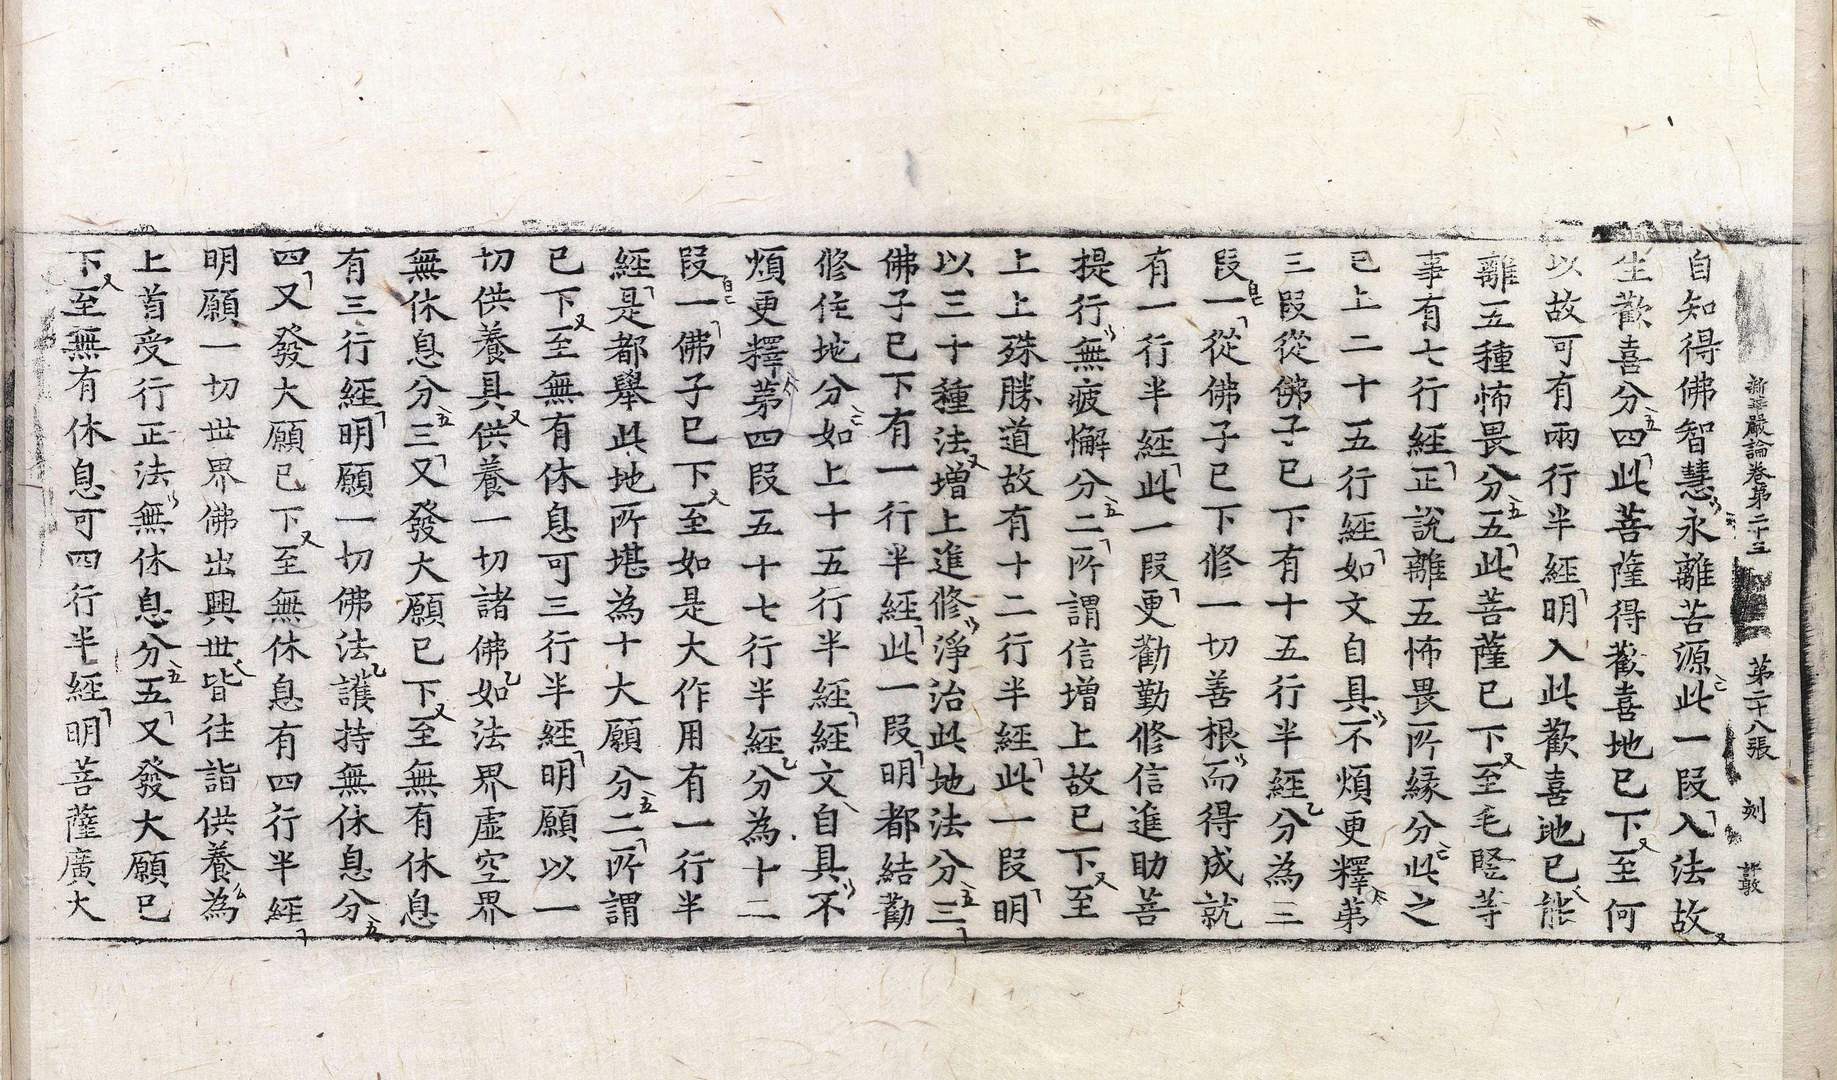 新華嚴論卷第二十三 第二十八張 刻 許敦
自知得佛智慧永離苦源此一段入法故
生歡喜分四此菩薩得歡喜地已下至何
以故可有兩行半經明入此歡喜地已能
離五種怖畏分五此菩薩已下至毛竪等
事有七行經正說離五怖畏所緣分此之
已上二十五行經如文自具不煩更釋第
三段從佛子已下有十五行半經分為三
段一從佛子已下修一切善根而得成就
有一行半經此一段更勸勤修信進助善
提行無疲懈分二所謂信增上故已下至
上上殊勝道故有十二行半經此一段明
以三十種法增上進修淨治此地法分三
佛子已下有一行半經此一段明都結勸
修住地分如上十五行半經經文自具不
煩更釋第四段五十七行半經分為十二
段一佛子已下至如是大作用有一行半
經是都舉此地所堪為十大願分二所謂
已下至無有休息可三行半經明願以一
切供養具供養一切諸佛如法界虛空界
無休息分三又發大願已下至無有休息
有三行經明願一切佛法護持無休息分
四又發大願已下至無休息有四行半經
明願一切世界佛出興世皆往詣供養為
上首受行正法無休息分五又發大願已
下至無有休息可四行半經明菩薩廣大